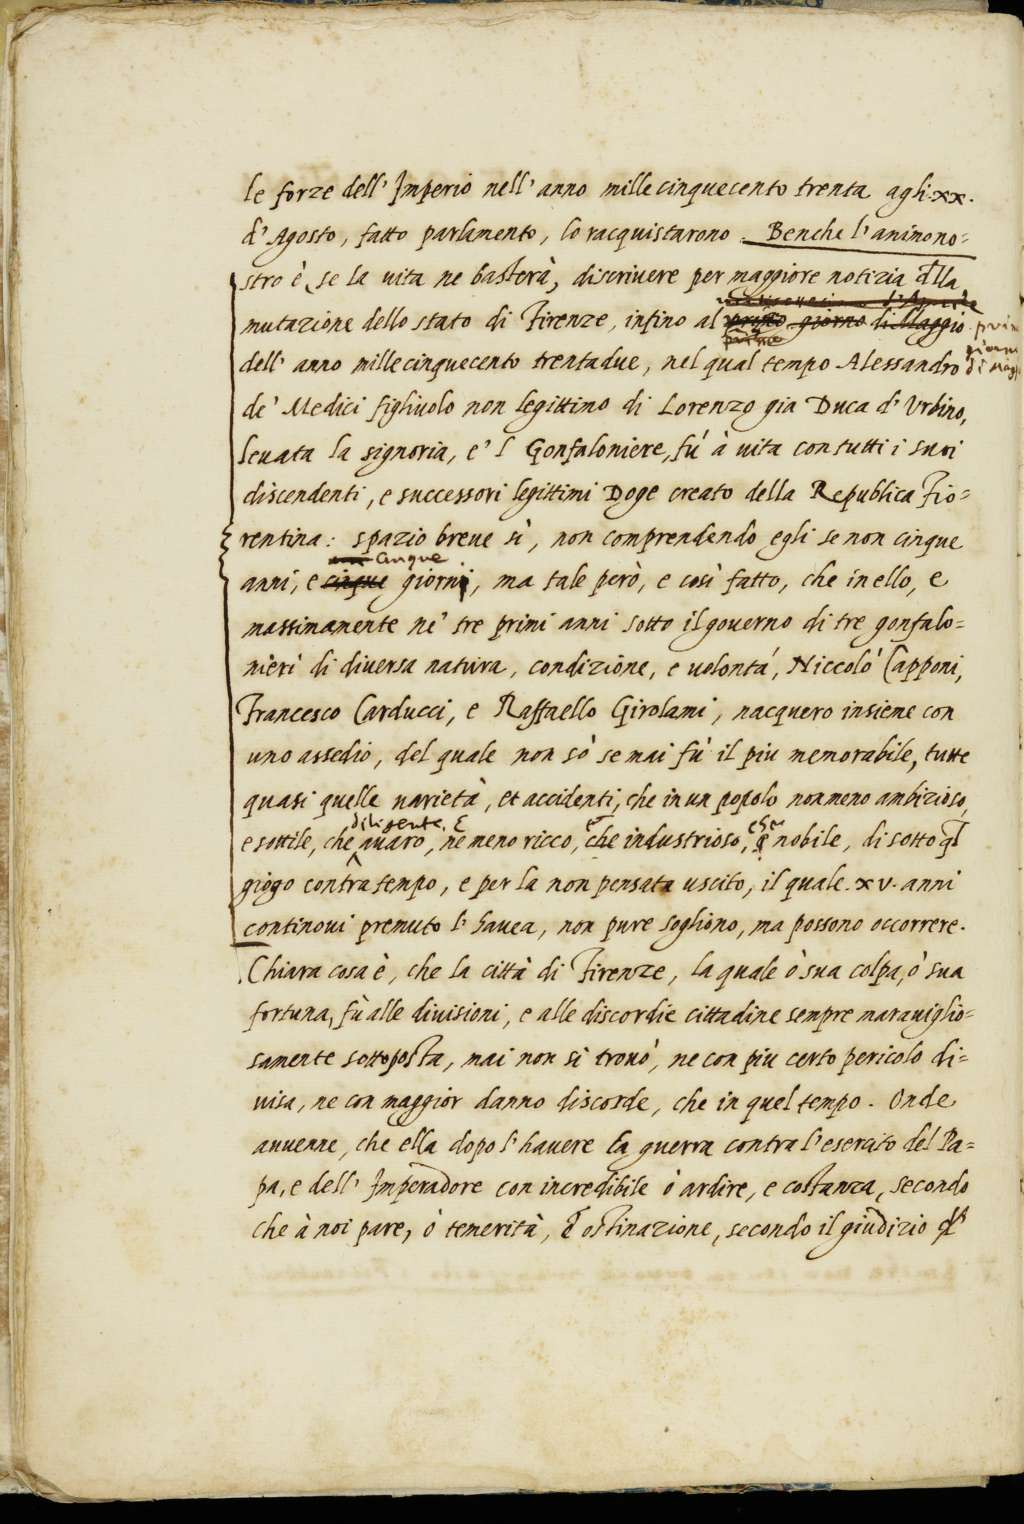 le forze dell' Imperio nell' anno millecinquecento trenta agli .xx.
d' Agosto, fatto parlamento, lo racquistarono. Benche l' animo no=
stro è, se la vita ne basterà, discrivere per maggiore notizia della
d' Aprile
mutazione dello stato di Firenze, infino al primo giorno di Maggio primo
primo giorno
dell' anno millecinquecento trentadue, nel qual tempo Alessandro di Maggio
de' Medici figliuolo non legittimo di Lorenzo gia Duca d' Urbino,
levata la signoria, e 'l Gonfaloniere, fú à vita con tutti i suoi
discendenti, e successori legittimi Doge creato della Republica Fio=
rentina: spazio breue sì, non comprendendo egli se non cinque
cinque
anni, e cinque giorni, ma tale però, e così fatto, che in ello, e
massimamente ne' tre primi anni sotto il gouerno di tre gonfalo=
nieri di diuersa natura, condizione, e uolontá, Niccoló Capponi,
Francesco Carducci, e Raffaello Girolami, nacquero insieme con
uno assedio, del quale non só se mai fú il piu memorabile, tutte
quasi quelle uarietà, et accidenti, che in un popolo non meno ambizioso,
diligente, e che
e sottile, che auaro, ne meno ricco, che industrioso, e nobile, di sotto ql
giogo contra tempo, e per la non pensata uscito, il quale .xv. anni
continoui premuto l' hauea, non pure sogliono, ma possono occorrere.
Chiara cosa è, che la città di Firenze, la quale ò sua colpa, ò sua
fortuna, fù alle diuisioni, e alle discordie cittadine sempre marauiglio=
samente sottoposta, mai non si trouó, ne con piu certo pericolo di=
uisa, ne con maggior danno discorde, che in quel tempo. Onde
auuenne, che ella dopo l' hauere la guerra contra l' esercito del Pa=
pa, e dell' Imperadore con incredibile ò ardire, e costanza, secondo
che à noi pare, ò temerità, et ostinazione, secondo il giudizio